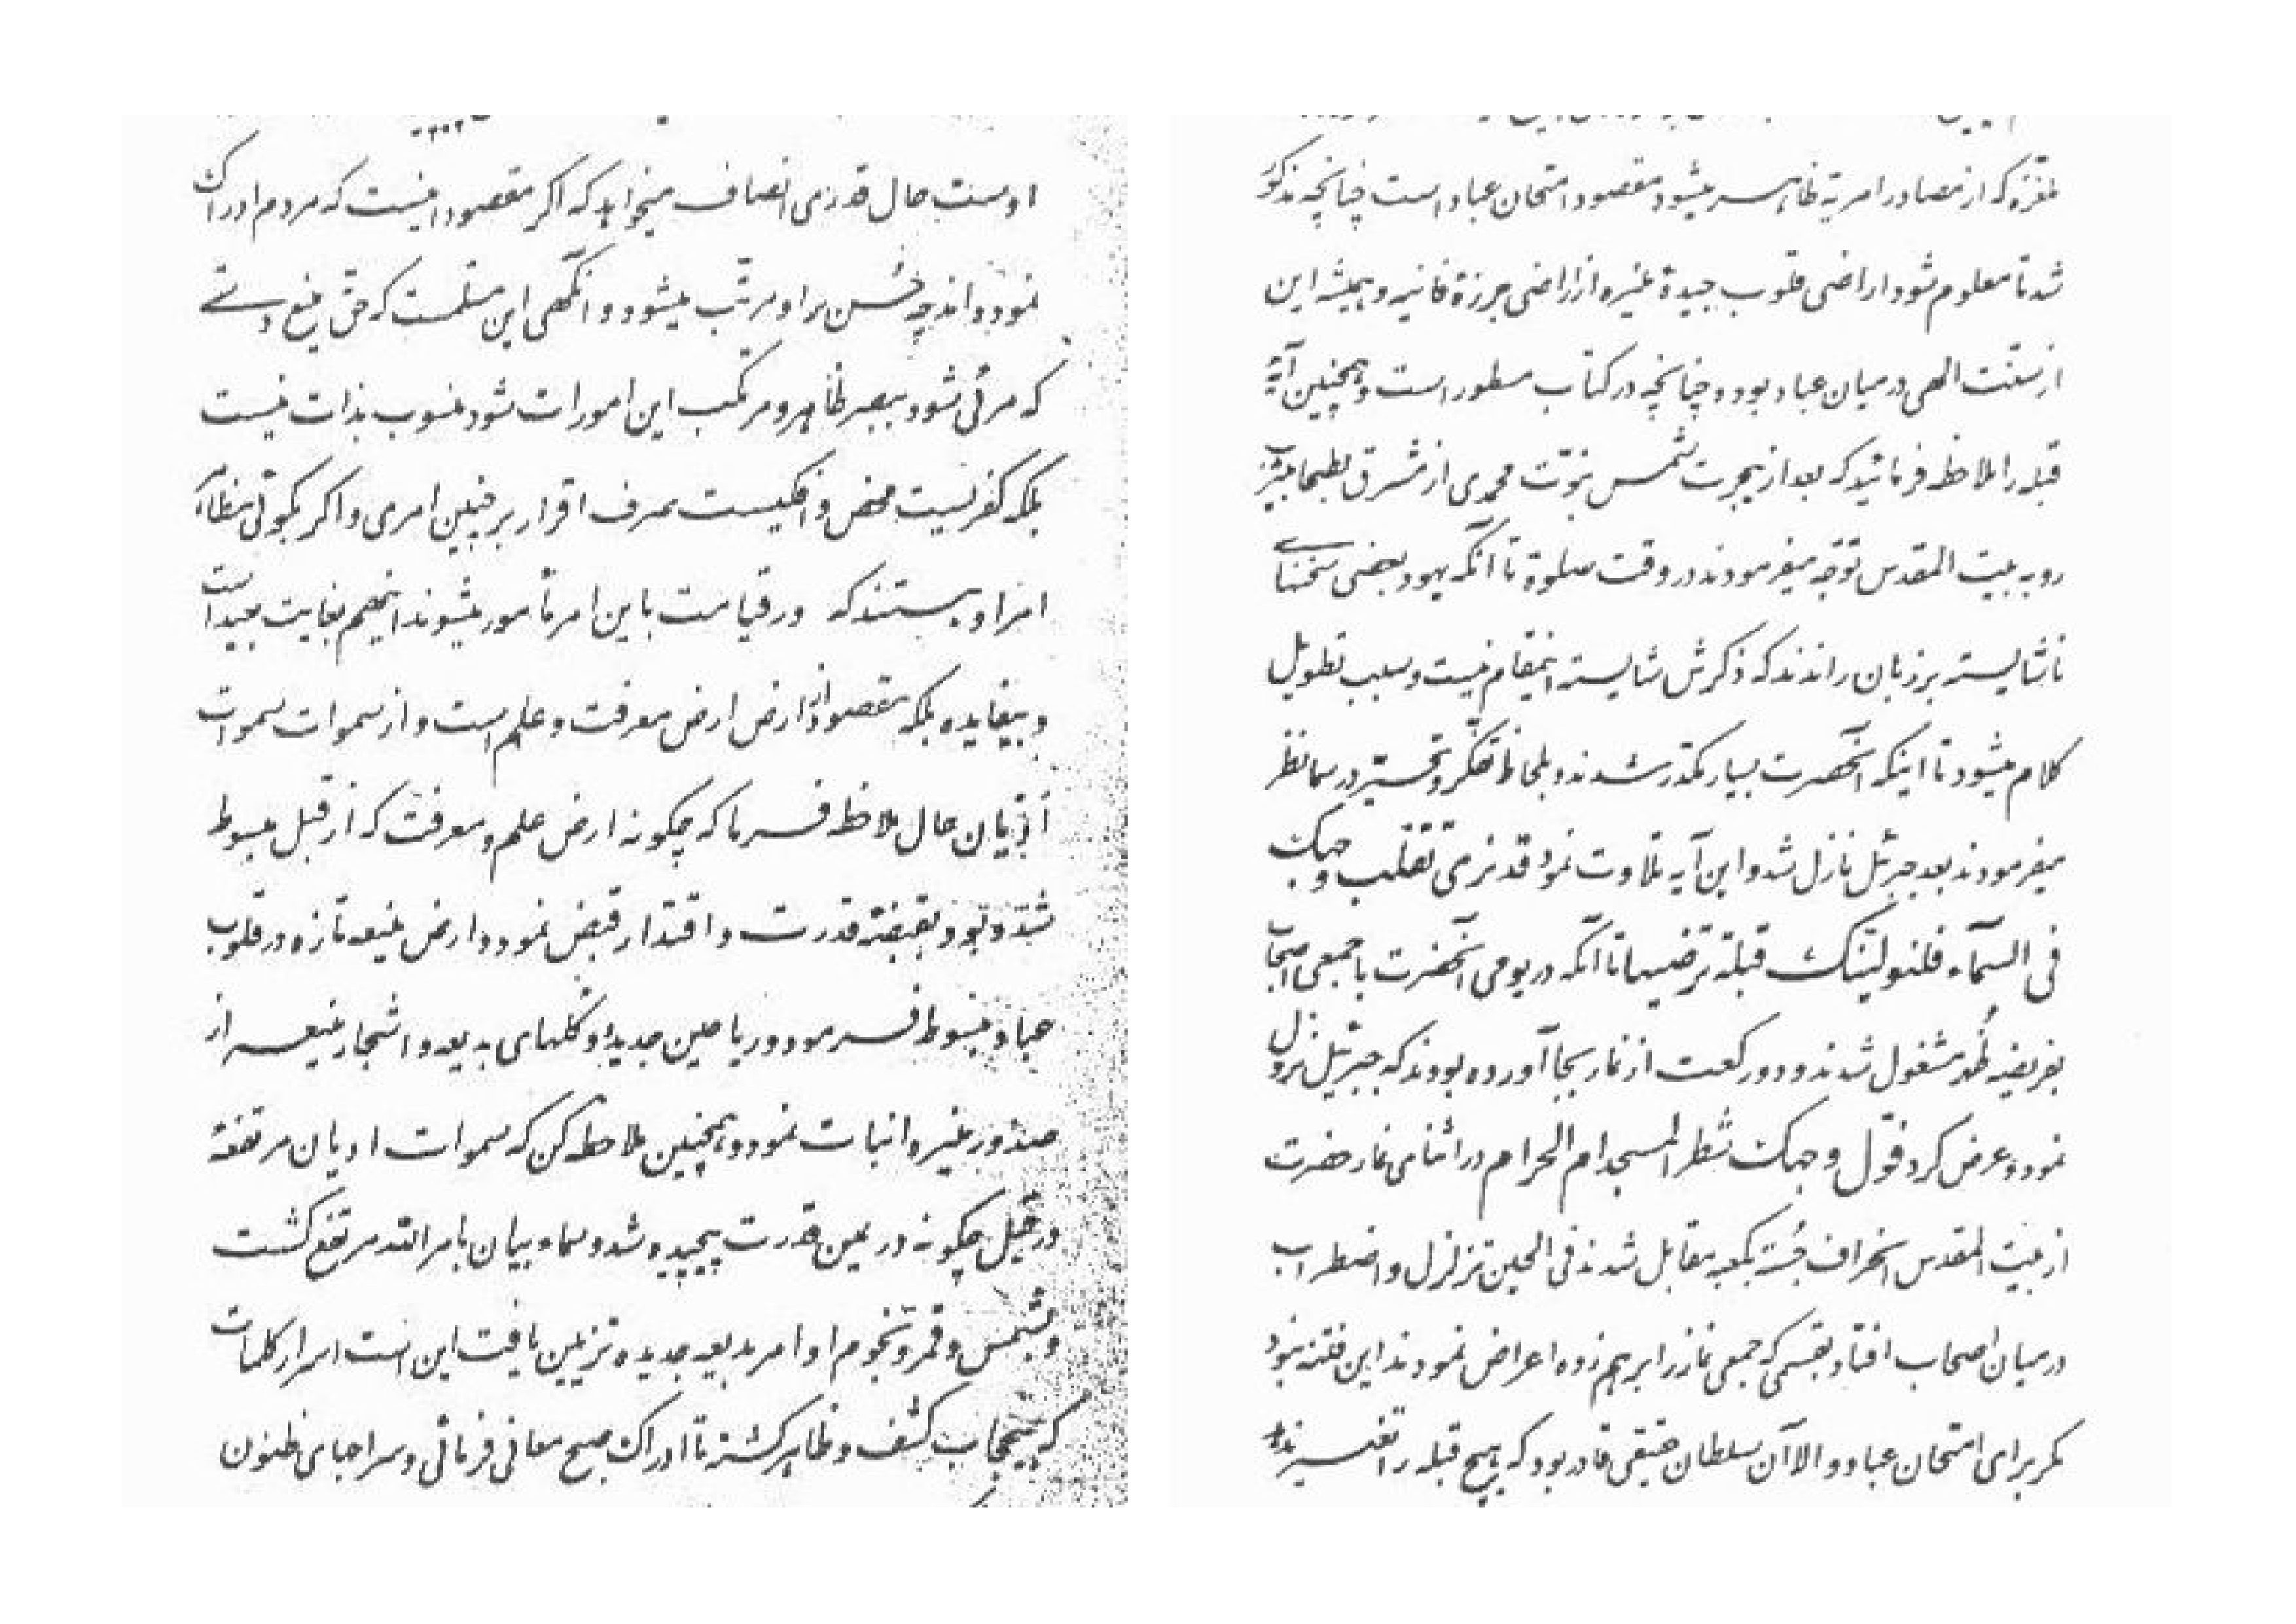 اوست حال قدری انصاف میخواهد که اگر مقصود اینست که مردم ادراک
نموده‌اند چه حُسن بر او مرتّب میشود و انگهی این مسلّمست که حق منیع دستی
که مرئی شود ببصر ظاهر و مرتکب این امورات شود منسوب بذات نیست
بلکه کفریست محض و افکیست صرف اقرار بر چنین امری و اگر بگوئی مظاهر
امر او هستند که در قیامت باین امر مأمور میشوند اینهم بغایت بعید است
و بیفایده بلکه مقصود از ارض ارض معرفت و علم است و از سموات سموات
ادیان حال ملاحظه فرما که چگونه ارض علم و معرفت که از قبل مبسوط
شده بود بقبضه قدرت و اقتدار قبض نمود و ارض منیعه تازه در قلوب
عباد مبسوط فرمود و ریاحین جدیده و گلهای بدیعه و اشجار منیعه از
صدور منیره انبات نمود و همچنین ملاحظه کن که سموات ادیان مرتفعه
در قبل چگونه در یمین قدرت پیچیده شد و سماء بیان بامر الله مرتفع گشت
و بشمس و قمر و نجوم اوامر بدیعه جدیده تزیین یافت این است اسرار کلمات
که بیحجاب کشف و ظاهر گشته تا ادراک صبح معانی فرمائی و سراجهای ظنون
ملغزه که از مصادر امریه ظاهر میشود مقصود امتحان عباد است چنانچه مذکور
شد تا معلوم شود اراضی قلوب جیدهٔ منیره از اراضی جرزهٔ فانیه و همیشه این
از سنّت الهی در میان عباد بوده چنانچه در کتاب مسطور است و همچنین آیهٔ
قبله را ملاحظه فرمائید که بعد از هجرت شمس نبوّت محمدی از مشرق بطحا بیثرب
رو به بیت المقدس توجّه میفرمودند در وقت صلوة تا آنکه یهود بعضی سخنهای
ناشایسته بر زبان راندند که ذکرش شایسته اینمقام نیست و سبب تطویل
کلام میشود تا اینکه آنحضرت بسیار مکدّر شدند و بلحاظ تفکّر و تحیّر در سما نظر
میفرمودند بعد جبرئیل نازل شد و این آیه تلاوت نمود قد نری تقلّب وجهک
فی السّمآء فلنولّینّک قبلة ترضیها تا آنکه در یومی آنحضرت با جمعی اصحاب
بفریضه ظُهر مشغول شدند و دو رکعت از نماز بجا آورده بودند که جبرئیل نزول
نمود و عرض کرد فَوَلّ وجهک شطر المسجد الحرام در اثنای نماز حضرت
از بیت المقدس انحراف جُسته بکعبه مقابل شدند فی الحین تزلزل و اضطراب
در میان اصحاب افتاد بقسمی که جمعی نماز را بر هم زده اعراض نمودند این فتنه نبود
مگر برای امتحان عباد و الا آن سلطان حقیقی قادر بود که هیچ قبله را تغییر ندهد